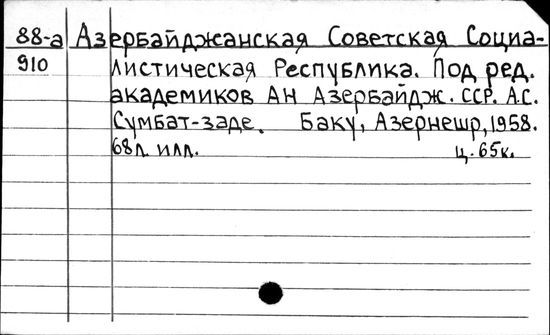 88-а Азербайджанская Советская Социа-
910 листическая Республика. Под ред.
академиков Ан Азербайдж. ССР. А.С.
Сумбат-заде. Баку, Азернешр, 1958.
68л. илл. ц. 65к.